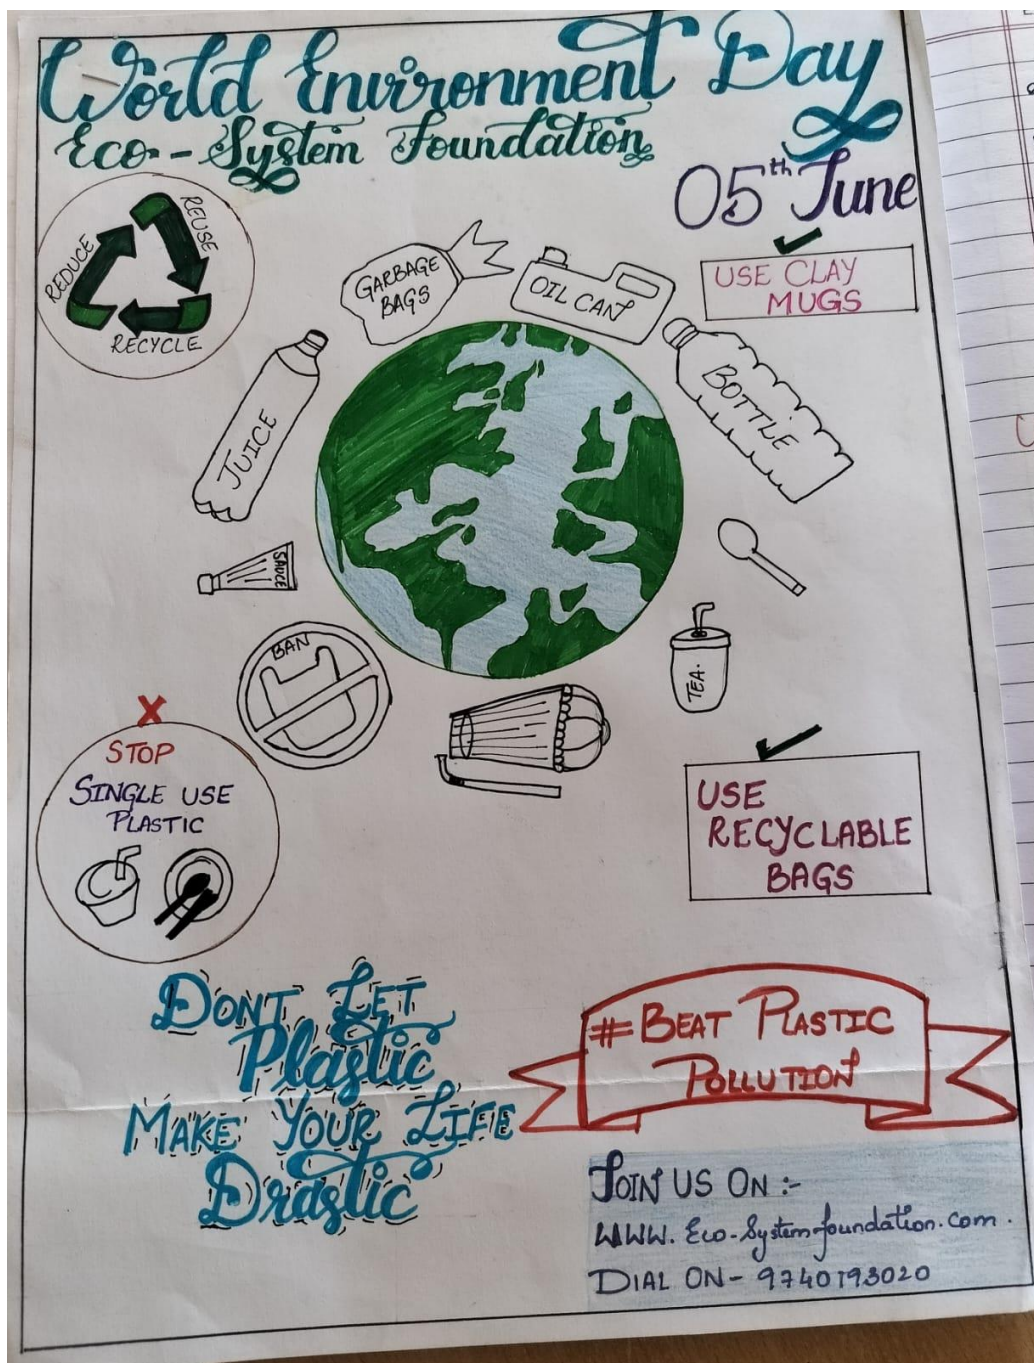 World Environment Day
Eco-System Foundation
05th June
REDUCE
REUSE
RECYCLE
GARBAGE
BAGS
OIL CAN
USE CLAY
MUGS
JUICE
BOTTLE
SAUCE
BAN
TEA.
STOP
SINGLE USE
PLASTIC
USE
RECYCLABLE
BAGS
DONT LET
Plastic
MAKE YOUR LIFE
Drastic
#BEAT PLASTIC
POLLUTION
JOIN US ON :-
WWW. Eco-Systemfoundation.com.
DIAL ON- 9740793020